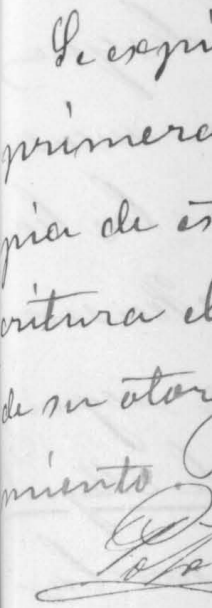 Se expi
primera
pia de es
critura el
de su otor
miento.